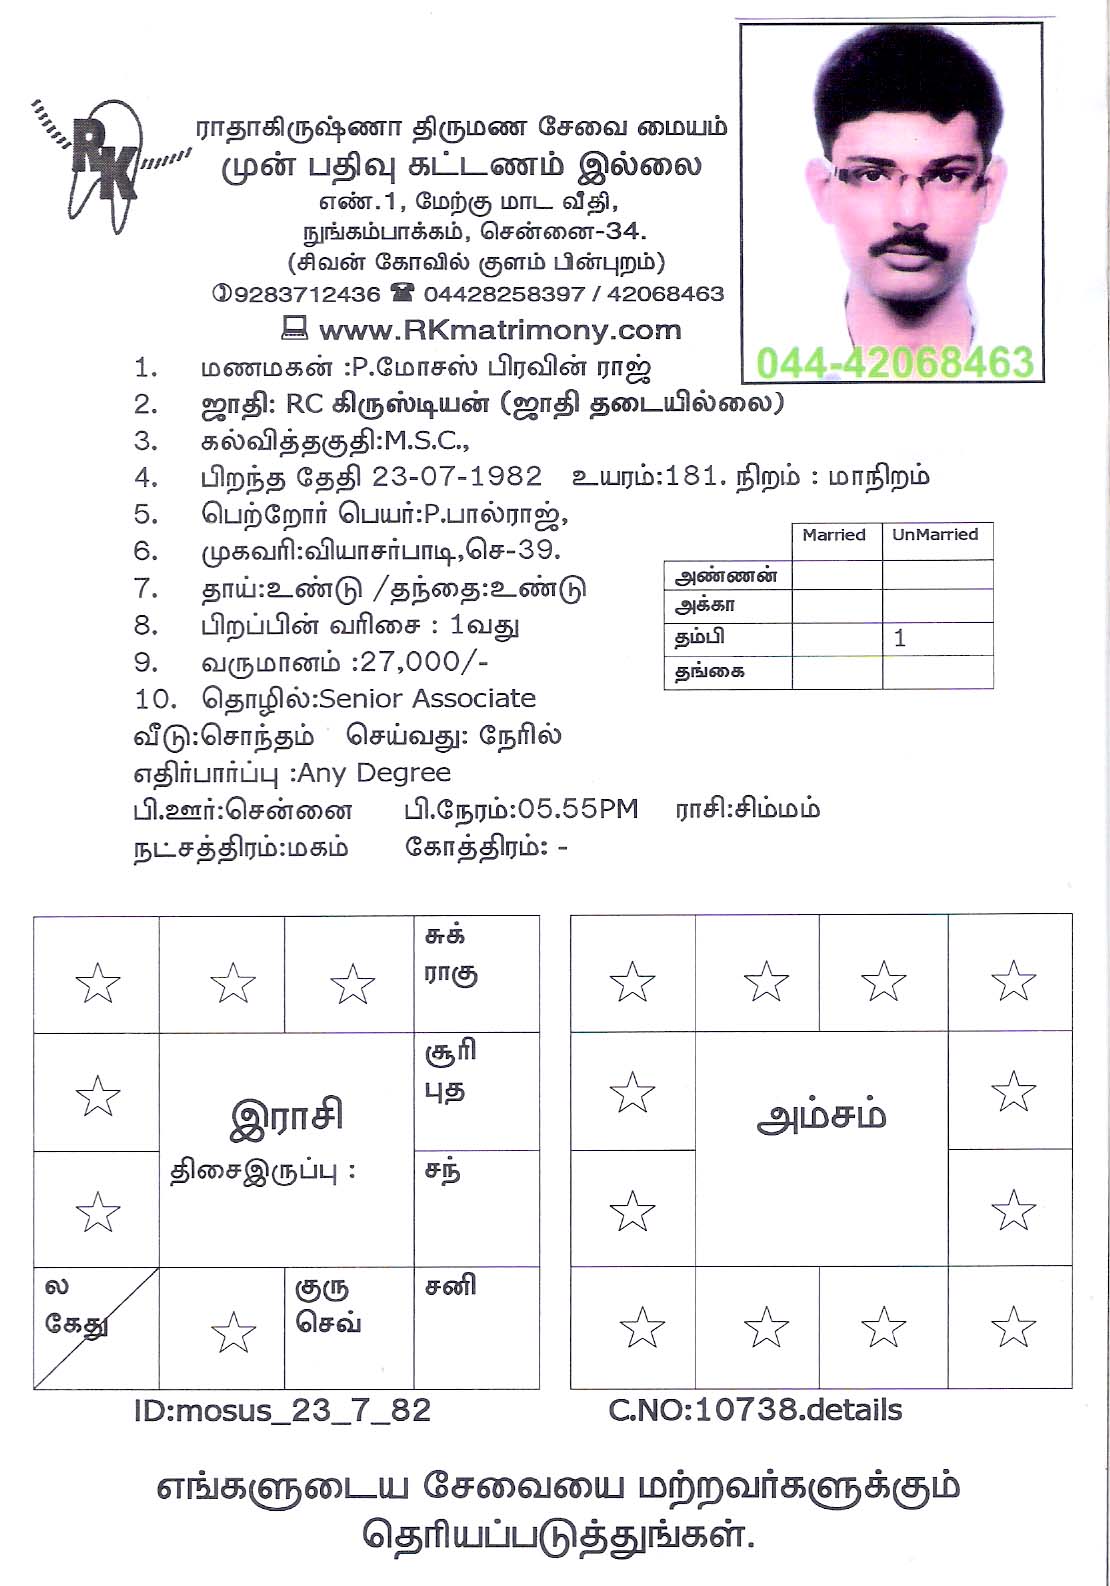 RK
ராதாகிருஷ்ணா திருமண சேவை மையம்
முன் பதிவு கட்டணம் இல்லை
எண்.1, மேற்கு மாட வீதி,
நுங்கம்பாக்கம், சென்னை-34.
(சிவன் கோவில் குளம் பின்புறம்)
✆9283712436 ☎ 04428258397 / 42068463
www.RKmatrimony.com
044-42068463
1. மணமகன் :P.மோசஸ் பிரவின் ராஜ்
2. ஜாதி: RC கிருஸ்டியன் (ஜாதி தடையில்லை)
3. கல்வித்தகுதி:M.S.C.,
4. பிறந்த தேதி 23-07-1982 உயரம்:181. நிறம் : மாநிறம்
5. பெற்றோர் பெயர்:P.பால்ராஜ்,
6. முகவரி:வியாசர்பாடி,செ-39.
7. தாய்:உண்டு /தந்தை:உண்டு
8. பிறப்பின் வரிசை : 1வது
9. வருமானம் :27,000/-
10. தொழில்:Senior Associate
Married UnMarried
அண்ணன்
அக்கா
தம்பி 1
தங்கை
வீடு:சொந்தம் செய்வது: நேரில்
எதிர்பார்ப்பு :Any Degree
பி.ஊர்:சென்னை பி.நேரம்:05.55PM ராசி:சிம்மம்
நட்சத்திரம்:மகம் கோத்திரம்: -
சுக்
ராகு
சூரி
புத
இராசி
திசைஇருப்பு :
சந்
ல
கேது
குரு
செவ்
சனி
அம்சம்
ID:mosus_23_7_82 C.NO:10738.details
எங்களுடைய சேவையை மற்றவர்களுக்கும்
தெரியப்படுத்துங்கள்.